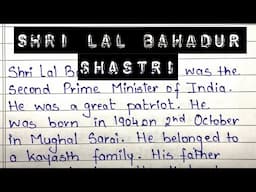 SHRI LAL BAHADUR
SHASTRI
Shri Lal B
was the
second Prime Minister of India.
He was a great patriot. He
was born in 1904 on 2nd October
in Mughal Sarai. He belonged to
a kayasth family. His father